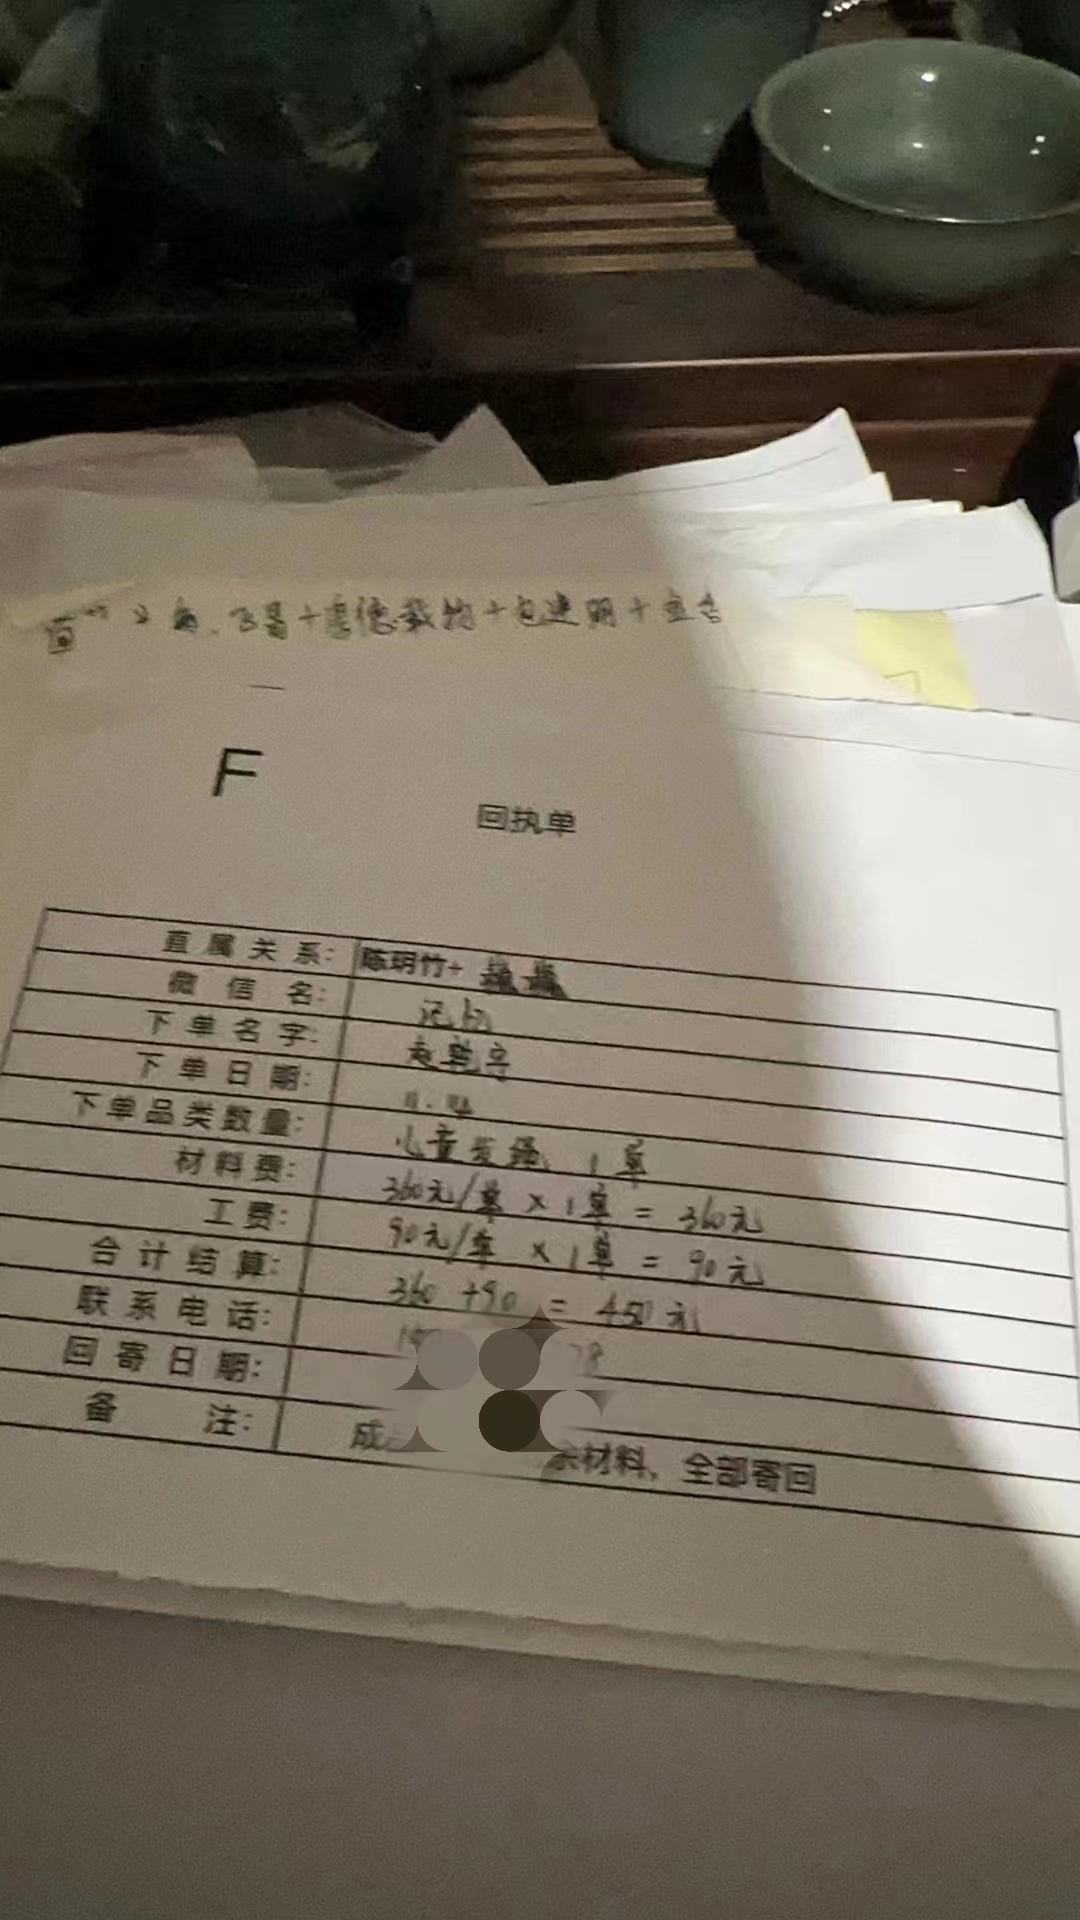 厚德载物+包建明+
F
回执单
直属关系: 陈玥竹+
微信名: 记忆
下单名字: 赵乾宇
下单日期: 11.14
下单品类数量: 儿童发绳 1单
材料费: 360元/单 × 1单 = 360元
工费: 90元/单 × 1单 = 90元
合计结算: 360 +90 = 450元
联系电话:
回寄日期:
备注: 成 余材料、全部寄回